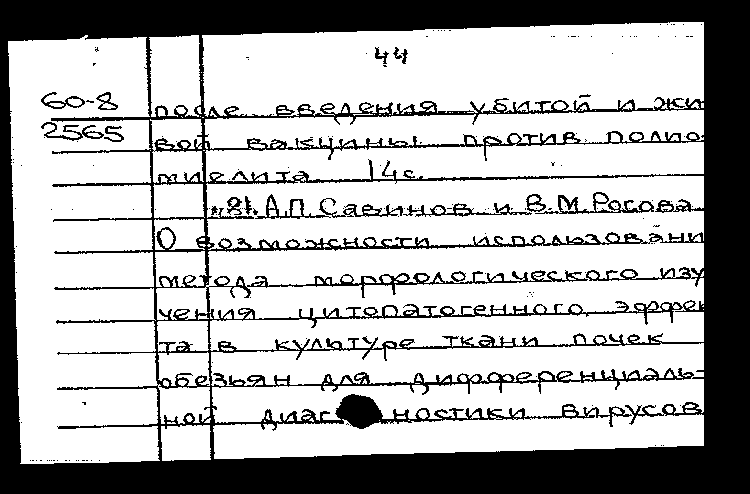 44
60-8 после введения убитой и жи
2565 вой вакцины против полио-
миелита 14с.
А.П. Савинов и В.М. Росова
О возможности использовани
метода морфологического изу
чения цитопатогенного эффек
та в культуре ткани почек
обезьян для дифференциаль-
ной диагностики вирусов